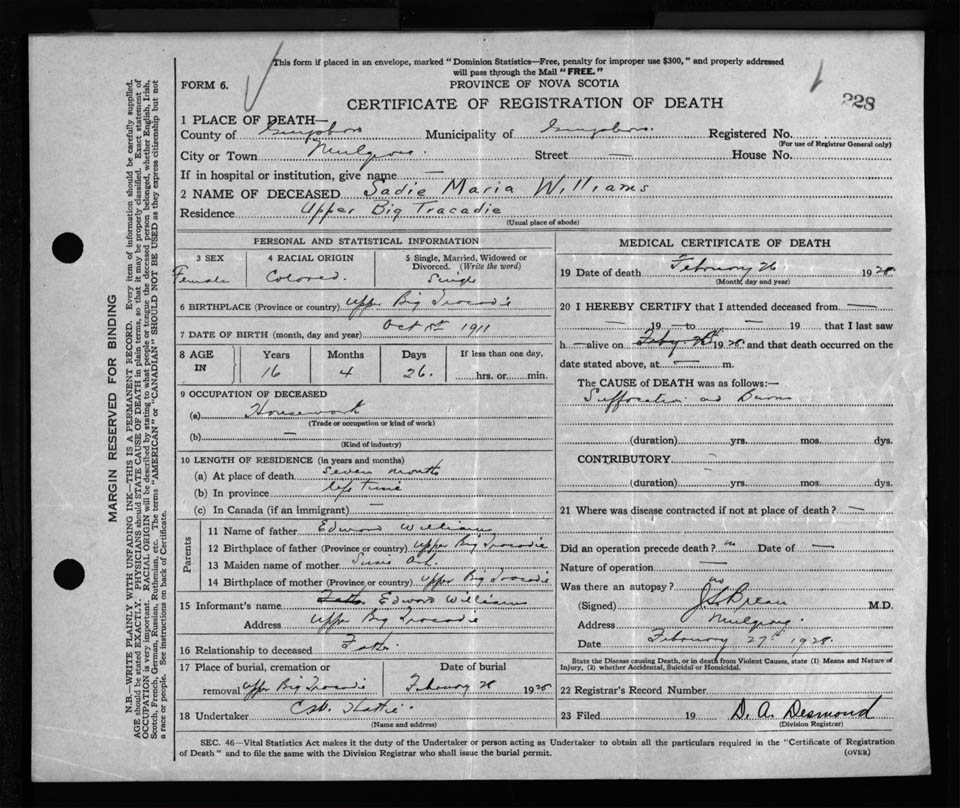 This form if placed in an envelope, marked "Dominion Statistics—Free, penalty for improper use $300," and properly addressed
will pass through the Mail "FREE."
FORM 6.
PROVINCE OF NOVA SCOTIA
228
CERTIFICATE OF REGISTRATION OF DEATH
1 PLACE OF DEATH—
County of Guysboro Municipality of Guysboro. Registered No.
(For use of Registrar General only)
City or Town Mulgrave. Street — House No.
If in hospital or institution, give name —
2 NAME OF DECEASED Sadie Maria Williams
Residence Upper Big Tracadie
(Usual place of abode)
PERSONAL AND STATISTICAL INFORMATION
3 SEX
Female
4 RACIAL ORIGIN
Colored.
5 Single, Married, Widowed or
Divorced. (Write the word)
Single
6 BIRTHPLACE (Province or country) Upper Big Tracadie
7 DATE OF BIRTH (month, day and year) Oct 1911
8 AGE IN
Years Months Days If less than one day,
16 4 26. hrs. or min.
9 OCCUPATION OF DECEASED
(a) Housework
(Trade or occupation or kind of work)
(b) —
(Kind of industry)
10 LENGTH OF RESIDENCE (in years and months)
(a) At place of death seven months
(b) In province life time
(c) In Canada (if an immigrant) —
Parents
11 Name of father Edward Williams
12 Birthplace of father (Province or country) Upper Big Tracadie
13 Maiden name of mother Susie
14 Birthplace of mother (Province or country) Upper Big Tracadie
15 Informant's name Edward Williams
Address Upper Big Tracadie
16 Relationship to deceased Father
17 Place of burial, cremation or
removal Upper Big Tracadie
Date of burial
February 28 1928
18 Undertaker
(Name and address)
MEDICAL CERTIFICATE OF DEATH
19 Date of death February 26 1928.
(Month, day and year)
20 I HEREBY CERTIFY that I attended deceased from —
— 19 — to — 19 that I last saw
h — alive on 1928. and that death occurred on the
date stated above, at — m.
The CAUSE of DEATH was as follows:—
Suffocation and Burns
(duration) yrs. mos. dys.
CONTRIBUTORY
(duration) yrs. mos. dys.
21 Where was disease contracted if not at place of death? —
Did an operation precede death? no Date of —
Nature of operation —
Was there an autopsy? no
(Signed) M.D.
Address Mulgrave.
Date February 27th 1928.
State the Disease causing Death, or in death from Violent Causes, state (1) Means and Nature of
Injury, (2) whether Accidental, Suicidal or Homicidal.
22 Registrar's Record Number
23 Filed 19 D. A. Desmond
(Division Registrar)
SEC. 46—Vital Statistics Act makes it the duty of the Undertaker or person acting as Undertaker to obtain all the particulars required in the "Certificate of Registration
of Death" and to file the same with the Division Registrar who shall issue the burial permit. (OVER)
MARGIN RESERVED FOR BINDING
N.B.—WRITE PLAINLY WITH UNFADING INK—THIS IS A PERMANENT RECORD. Every item of information should be carefully supplied.
AGE should be stated EXACTLY. PHYSICIANS should STATE CAUSE OF DEATH in plain terms, so that it may be properly classified. Exact statement of
OCCUPATION is very important. RACIAL ORIGIN will be described by stating to what people or tongue the deceased person belonged, whether English, Irish,
Scotch, French, German, Russian, Ruthenian, etc. The terms "AMERICAN" or "CANADIAN" SHOULD NOT BE USED as they express citizenship but not
a race or people. See instructions on back of Certificate.